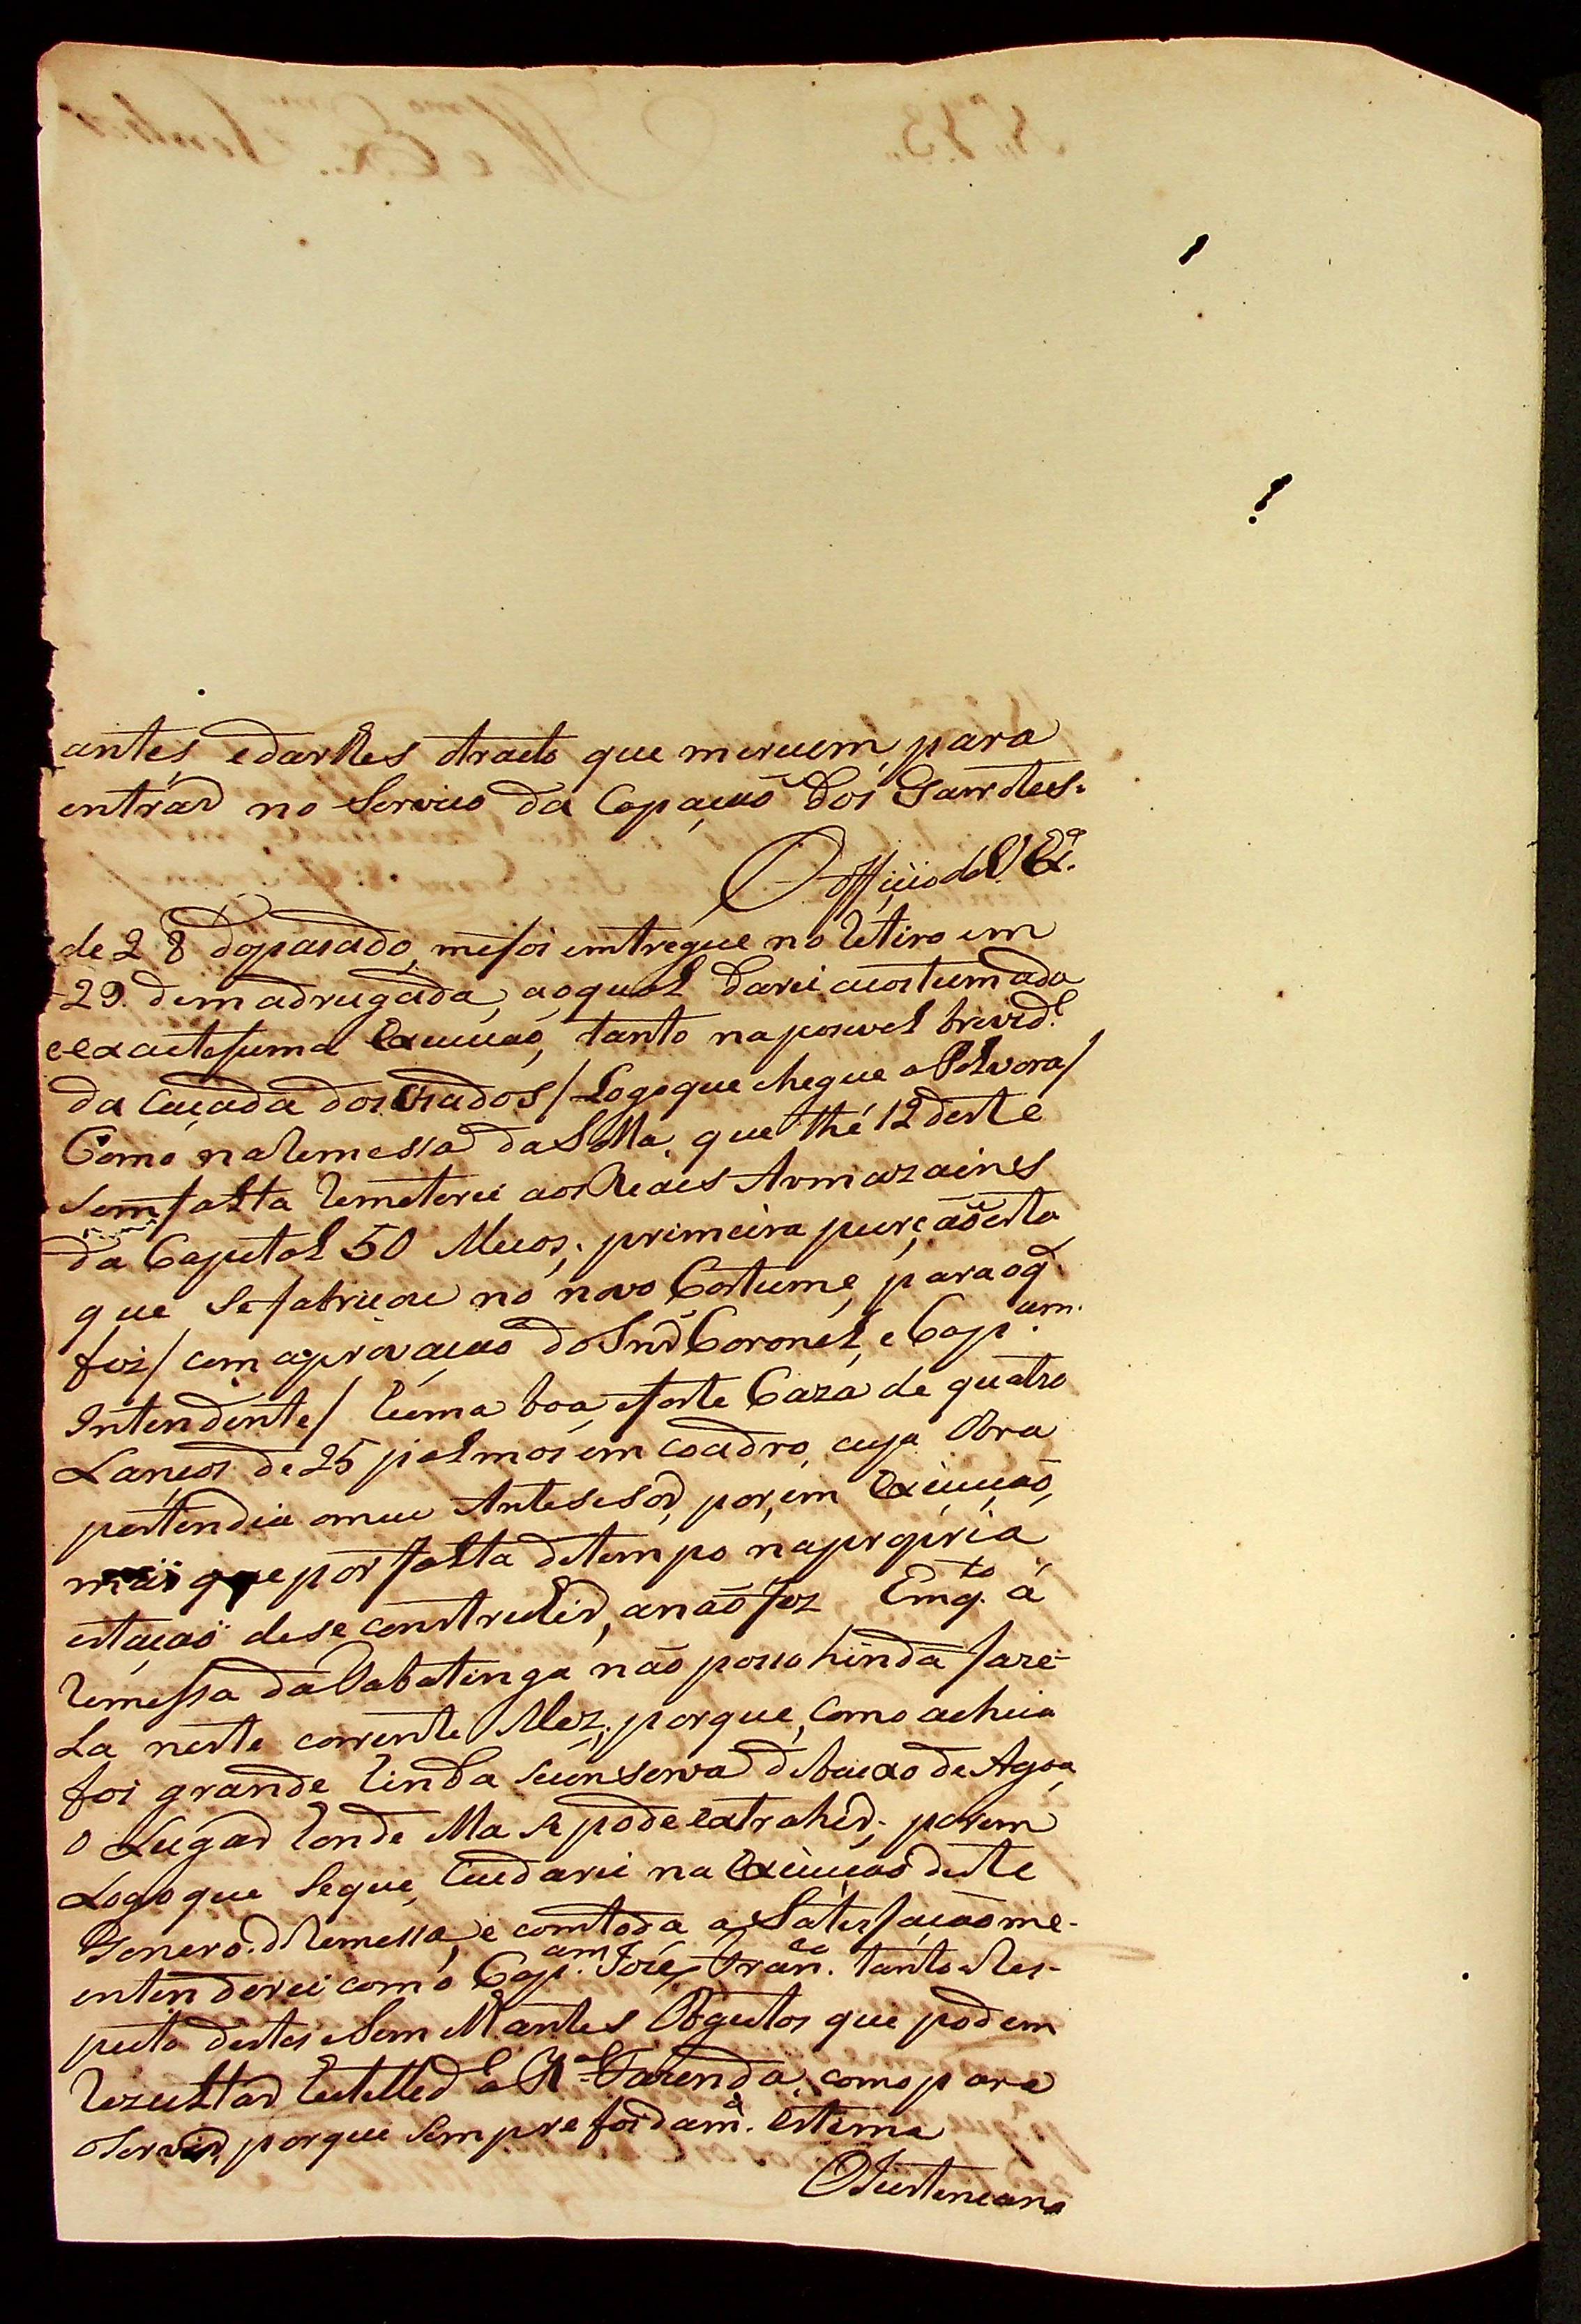 antes, edarlhes otracto que mereçem, para
entrar no Serviço da Capaçaõ dos Garrótes.
O Officio de V. Exª.
de 28 dopasado, mefoi emtregue no Retiro em
29. demadrugada, aoqual darei acostumada
eexactesuma Execuçaõ, tanto naposivel brevid.e
da Caçada dos Viados / Logoque chegue a Polvora /
Como na Remessa da Solla, que thé 12 deste
Semfalta Remeterei aos Reaes Armazaines
da Capital 50 Meios; primeira purçaõ esta
que Sefabricou no novo Cortume, para oq.
fiz / com aprovaçaõ do Snr Coronel, e Cap.am
Intendente / huma boa, eforte Caza de quatro
Lanços de 25 palmos em Coadro, cuja Obra
pertendia omeu Antesesor, por, em Execuçaõ,
mais que por falta detempo napropria
estaçaõ dese construhir, anaõ fez Emq.to á
Remessa da Tabatinga naõ posso hinda faze-
La neste corrente Mez; porque, como acheia
foi grande hinda Seconserva debaixo de Agoa
o Lugar honde Ella se pode extrahir; porem
Logo que Seque, Cuidarei na Execuçaõ deste
Genero. de Remessa, e comtoda a Satisfaçaõ me-
entenderei como Cap.am José Fran.co tanto Res-
peito destes Semilhantes Obgetos que podem
Rezultar Utellid.e a Rl. Fazenda, como para
oServir, porque Sempre foi dam.ª estima
O Justeneano